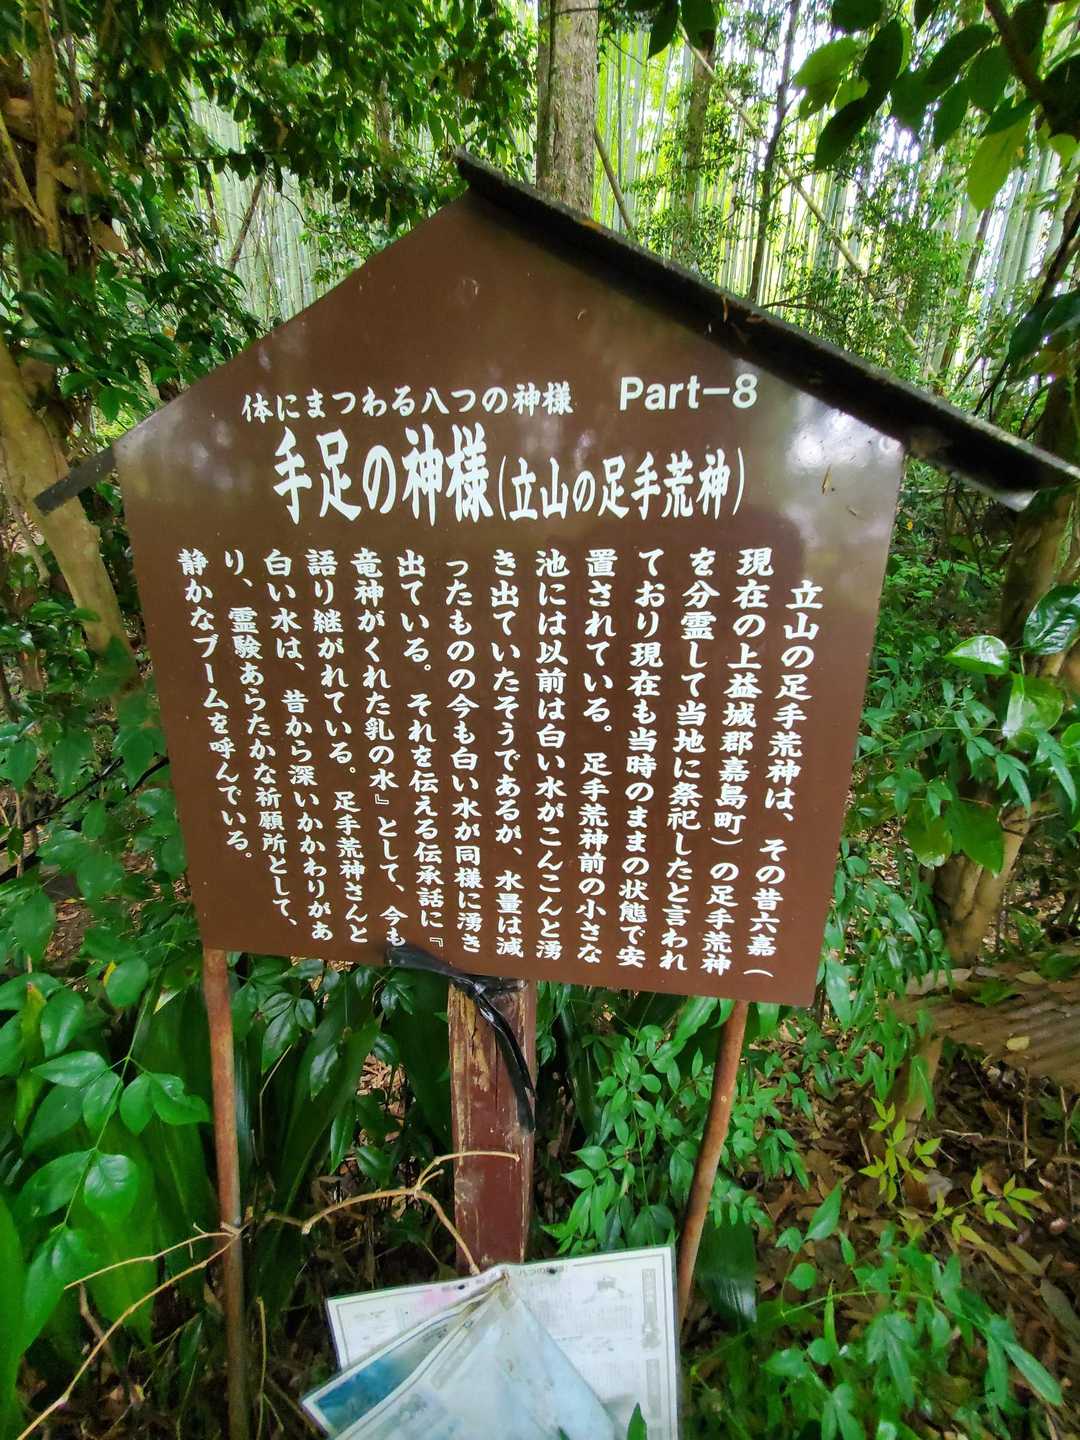 体にまつわる八つの神様　Part-8
手足の神様(立山の足手荒神)
立山の足手荒神は、その昔六嘉（
現在の上益城郡嘉島町）の足手荒神
を分霊して当地に祭祀したと言われ
ており現在も当時のままの状態で安
置されている。足手荒神前の小さな
池には以前は白い水がこんこんと湧
き出ていたそうであるが、水量は減
ったものの今も白い水が同様に湧き
出ている。それを伝える伝承話に『
竜神がくれた乳の水』として、今も
語り継がれている。足手荒神さんと
白い水は、昔から深いかかわりがあ
り、霊験あらたかな祈願所として、
静かなブームを呼んでいる。